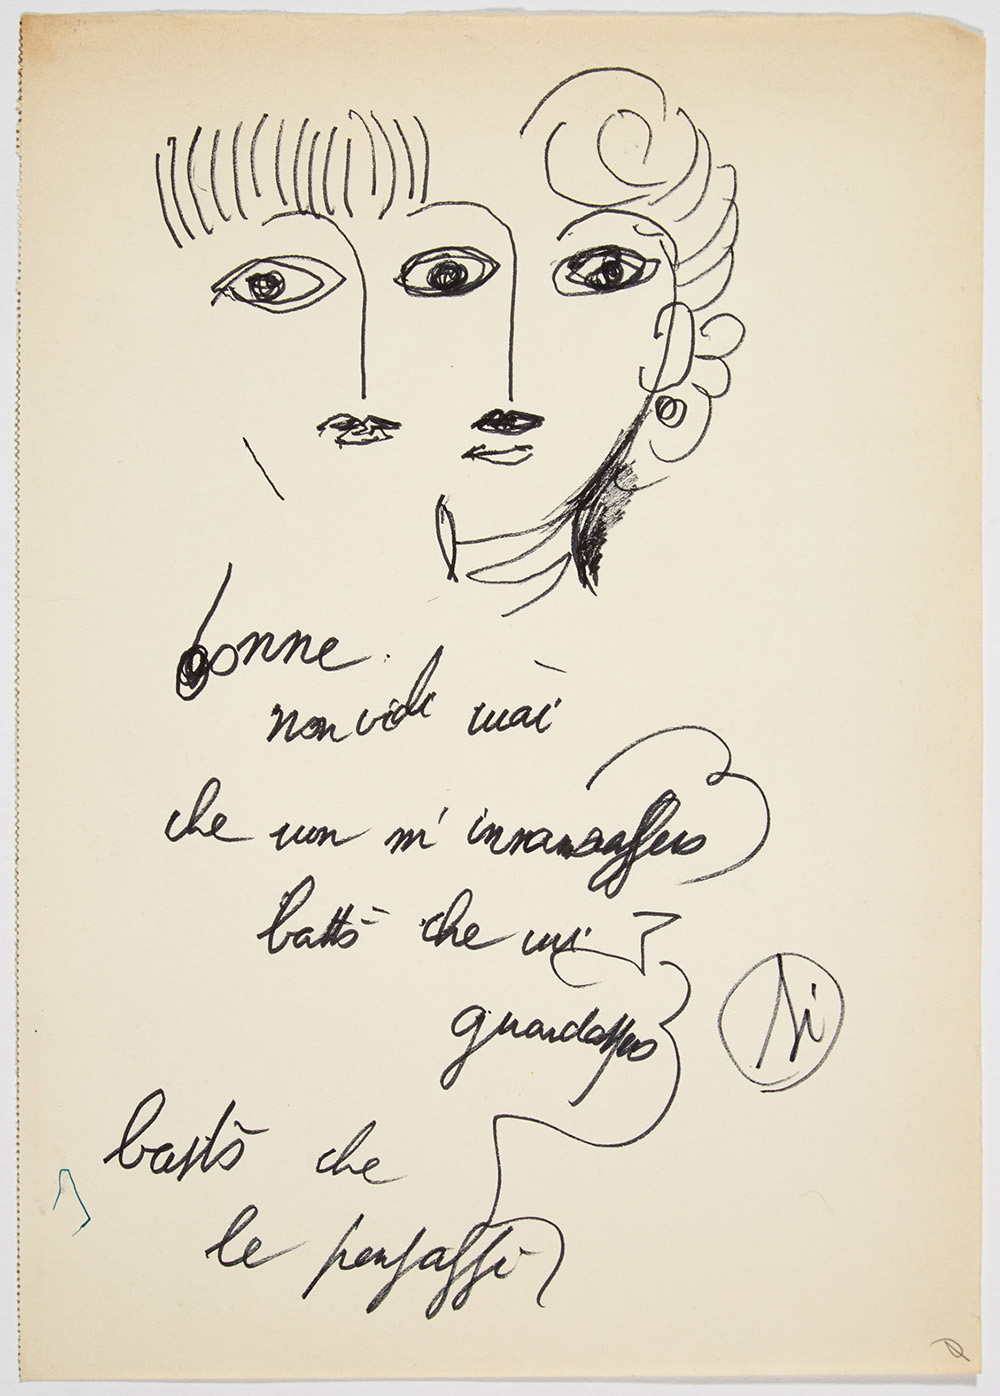 donne
non vidi mai
che non m'innamassero
bastò che mi
guardassero
bastò che
le pensassi
Si